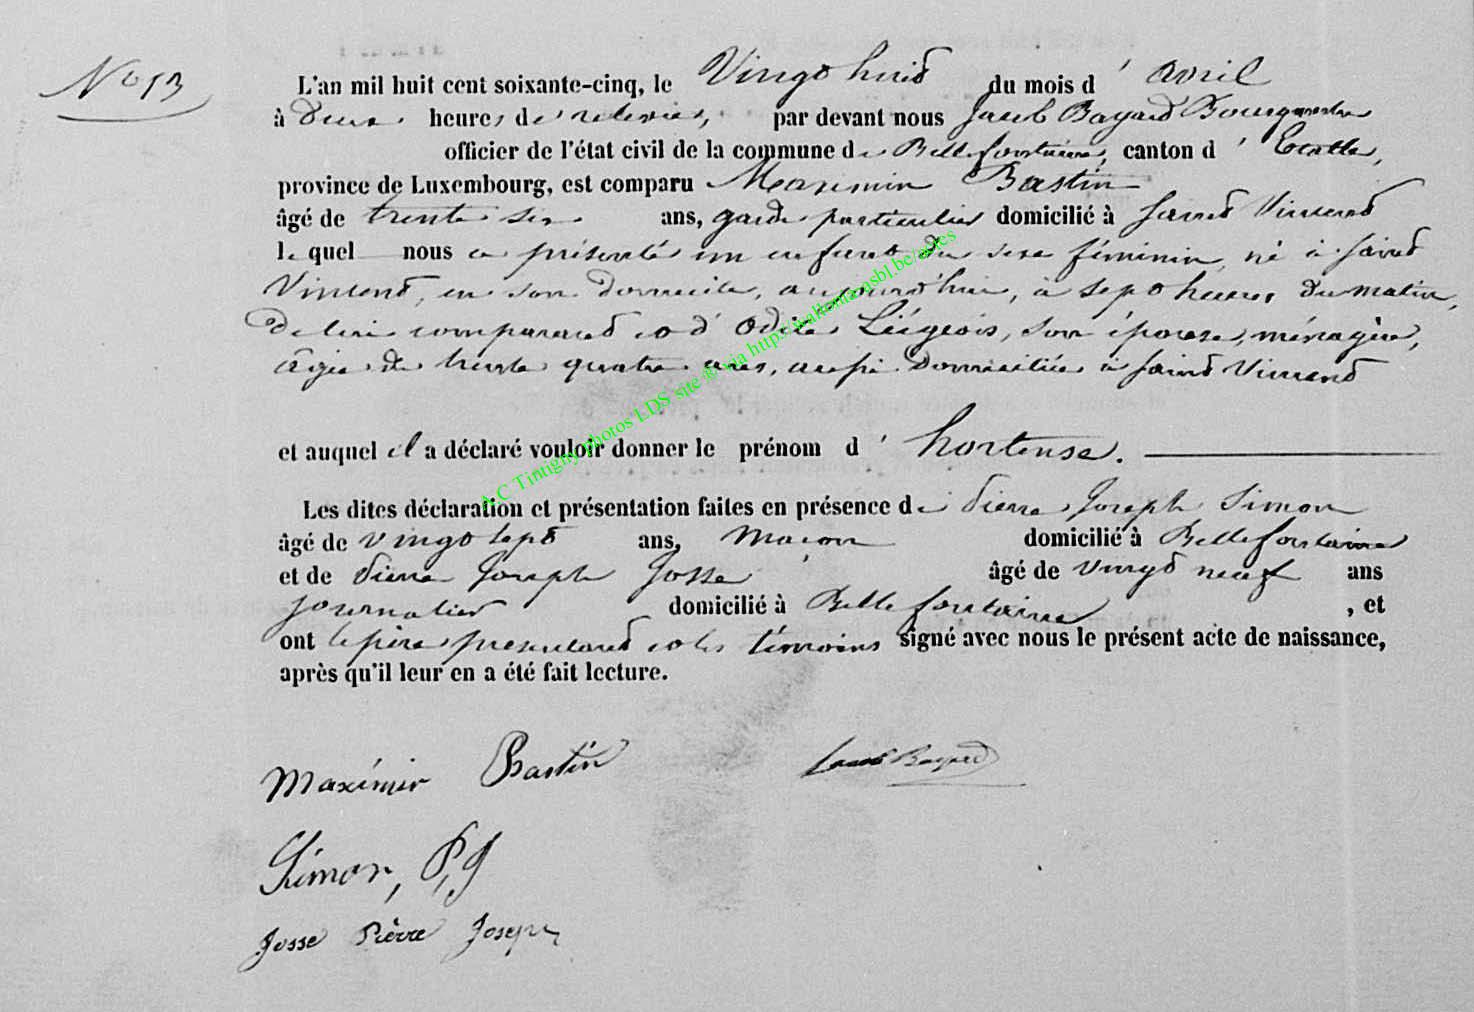 No 13
L'an mil huit cent soixante-cinq, le Vingt huit du mois d'avril
à deux heures de relevée, par devant nous Jacob Bayard Bourgmestre
officier de l'état civil de la commune de Bellefontaine, canton d'Etalle,
province de Luxembourg, est comparu Maximin Bastin
âgé de trente six ans, garde particulier domicilié à Saint Vincent
lequel nous a présenté un enfant du sexe féminin, né à Saint
Vincent, en son domicile, aujourd'hui, à sept heures du matin,
de lui comparant et d'Odile Liégeois, son épouse, ménagère,
âgée de trente quatre ans, aussi domiciliée à Saint Vincent
et auquel il a déclaré vouloir donner le prénom d'hortense.
Les dites déclaration et présentation faites en présence de Pierre Joseph Simon
âgé de vingt sept ans, maçon domicilié à Bellefontaine
et de Pierre Joseph Josse âgé de vingt neuf ans
journalier domicilié à Bellefontaine, et
ont le père présentant et les témoins signé avec nous le présent acte de naissance,
après qu'il leur en a été fait lecture.
Maximin Bastin Jacob Bayard
Simon, P, J
Josse Pierre Joseph
A.C Tintigny photos LDS site @ via http://wallonia.asbl.be/actes